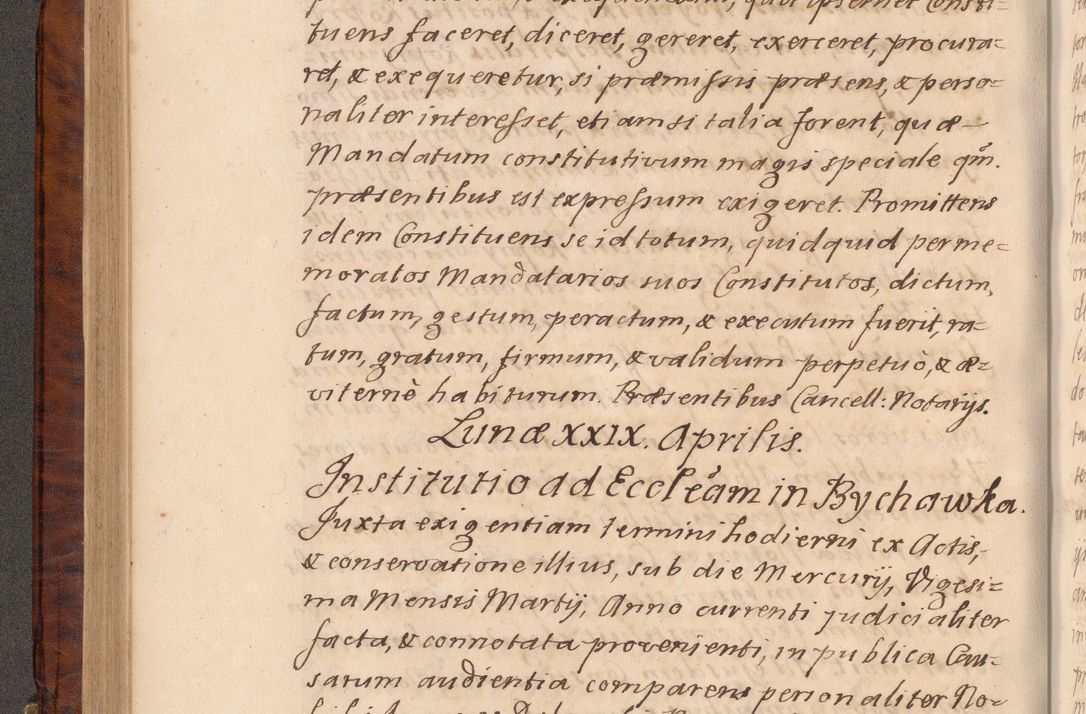 tuens faceret, diceret, gereret, exerceret, procura=
ret, & exequeretur, si præmissis præsens, & perso=
naliter interesset, etiamsi talia forent, quæ
Mandatum constitutivum magis speciale qm̃.
præsentibus est expressum exigeret. Promittens
idem Constituens se id totum, quidquid per me=
moratos Mandatarios suos Constitutos, dictum,
factum, gestum, peractum, & executum fuerit, ra=
tum, gratum, firmum, & validum perpetuò, & æ=
viternè habiturum. Præsentibus Cancell: Notarijs.
Lunæ XXIX. Aprilis.
Institutio ad Eccleãm in Bychawka.
Juxta exigentiam termini hodierni ex Actis,
& conservatione illius, sub die Mercurij, Vigesi=
ma Mensis Martij, Anno currenti judicialiter
facta, & connotata provenienti, in publica Cau=
sarum audientia comparens personaliter No=